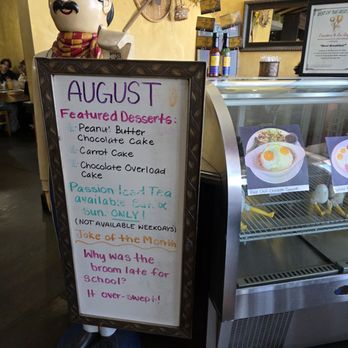 AUGUST
Featured Desserts:
Peanut Butter
Chocolate Cake
Carrot Cake
Chocolate Overload
Cake
Passion Iced Tea
available Sat &
Sun. ONLY!
(NOT AVAILABLE WEEKDAYS)
Joke of the Month
Why was the
broom late for
school?
It over-swept!